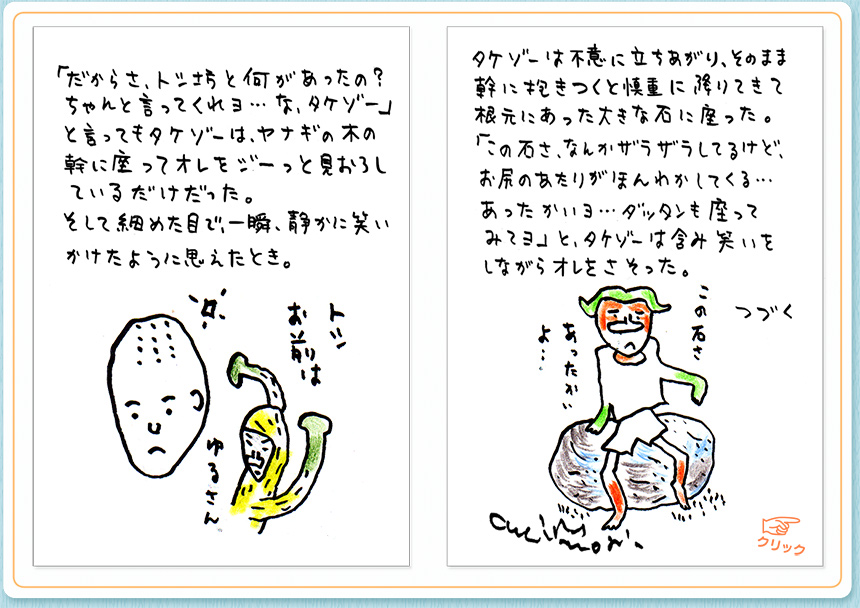 「だからさ、トシ坊と何があったの?
ちゃんと言ってくれヨ…な、タケゾー」
と言ってもタケゾーは、ヤナギの木の
幹に座ってオレをジーっと見おろし
ているだけだった。
そして細めた目で、一瞬、静かに笑い
かけたように思えたとき。
トシ
お前は
ゆるさん
タケゾーは不意に立ちあがり、そのまま
幹に抱きつくと慎重に降りてきて
根元にあった大きな石に座った。
「この石さ、なんかザラザラしてるけど、
お尻のあたりがほんわかしてくる…
あったかいヨ…ダッタンも座って
みてヨ」と、タケゾーは含み笑いを
しながらオレをさそった。
つづく
この石さ
あったかい
よ…
クリック